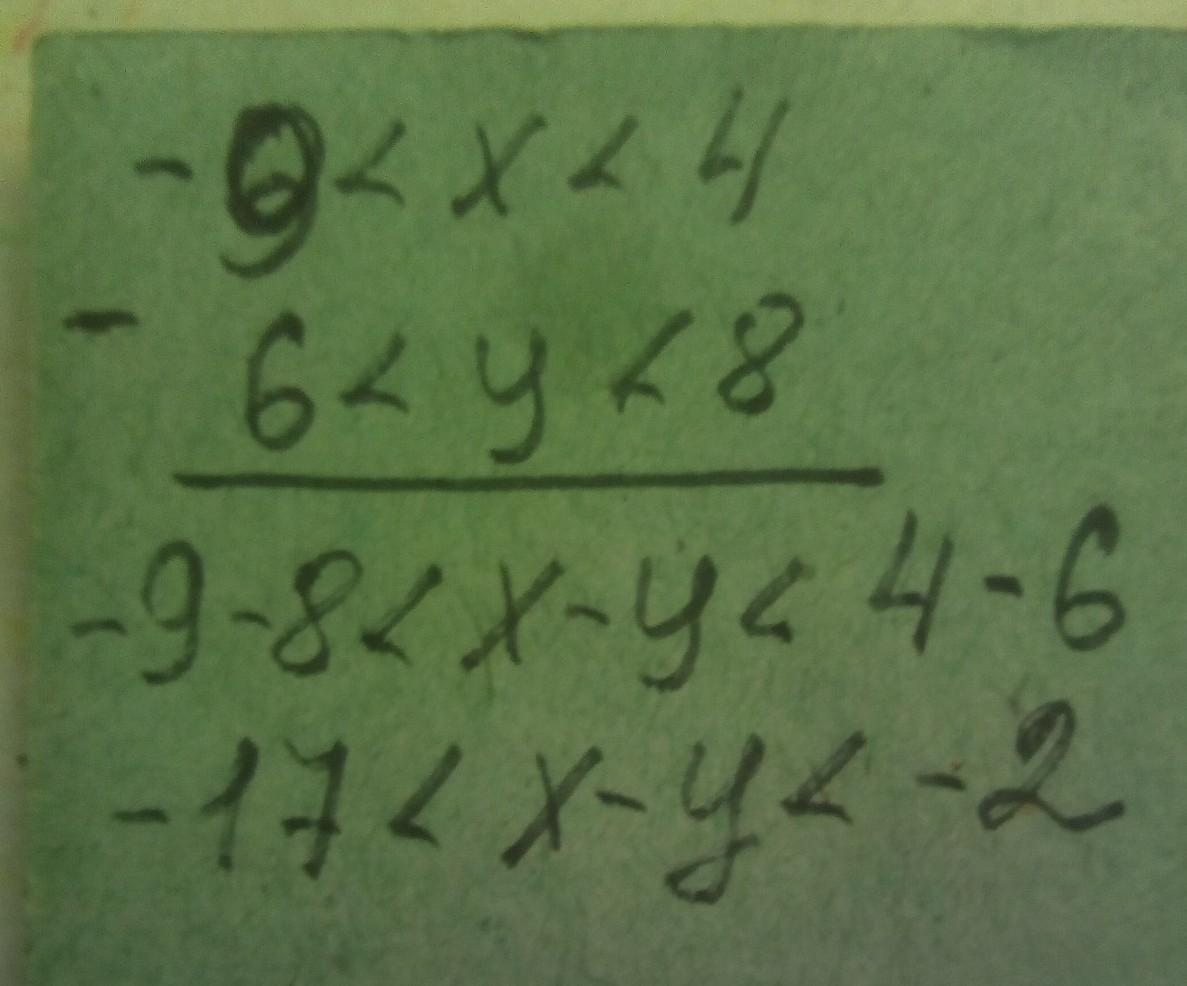 -9 < x < 4
-
6 < y < 8
-9-8 < x-y < 4-6
-17 < x-y < -2